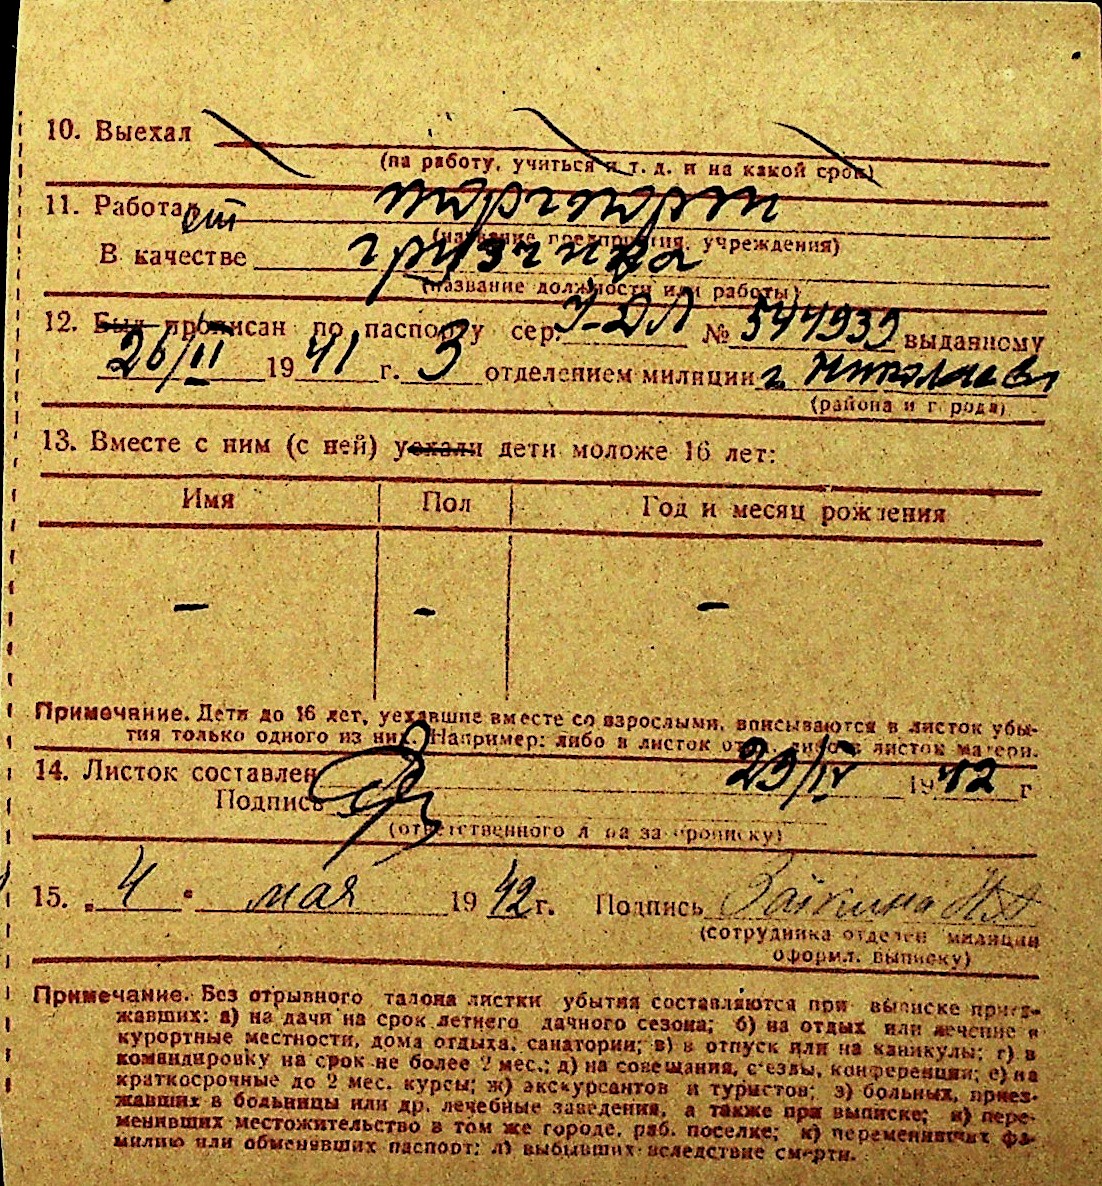 10. Выехал
(на работу, учиться и т. д. и на какой срок)
11. Работает торгпорт
(название предприятия, учреждения)
В качестве грузчика
(название должности или работы)
12. Был прописан по паспорту сер. № 544939 выданному
26/II 1941 г. 3 отделением милиции г. Николаев
(района и города)
13. Вместе с ним (с ней) уехали дети моложе 16 лет:
Имя Пол Год и месяц рождения
— — —
Примечание. Дети до 16 лет, уехавшие вместе со взрослыми, вписываются в листок убы-
тия только одного из них. Например: либо в листок отца, либо в листок матери.
14. Листок составлен 29/IV 1942 г
Подпись
(ответственного лица за прописку)
15. „4" мая 1942 г. Подпись
(сотрудника отделен. милиции
оформ. выписку)
Примечание. Без отрывного талона листки убытия составляются при выписке приез-
жавших: а) на дачи на срок летнего дачного сезона; б) на отдых или лечение в
курортные местности, дома отдыха, санатории; в) в отпуск или на каникулы; г) в
командировку на срок не более 2 мес.; д) на совещания, съезды, конференции; е) на
краткосрочные до 2 мес. курсы; ж) экскурсантов и туристов; з) больных, приез-
жавших в больницы или др. лечебные заведения, а также при выписке; и) пере-
менивших местожительство в том же городе, раб. поселке; к) переменивших фа-
милию или обменявших паспорт; л) выбывших вследствие смерти.